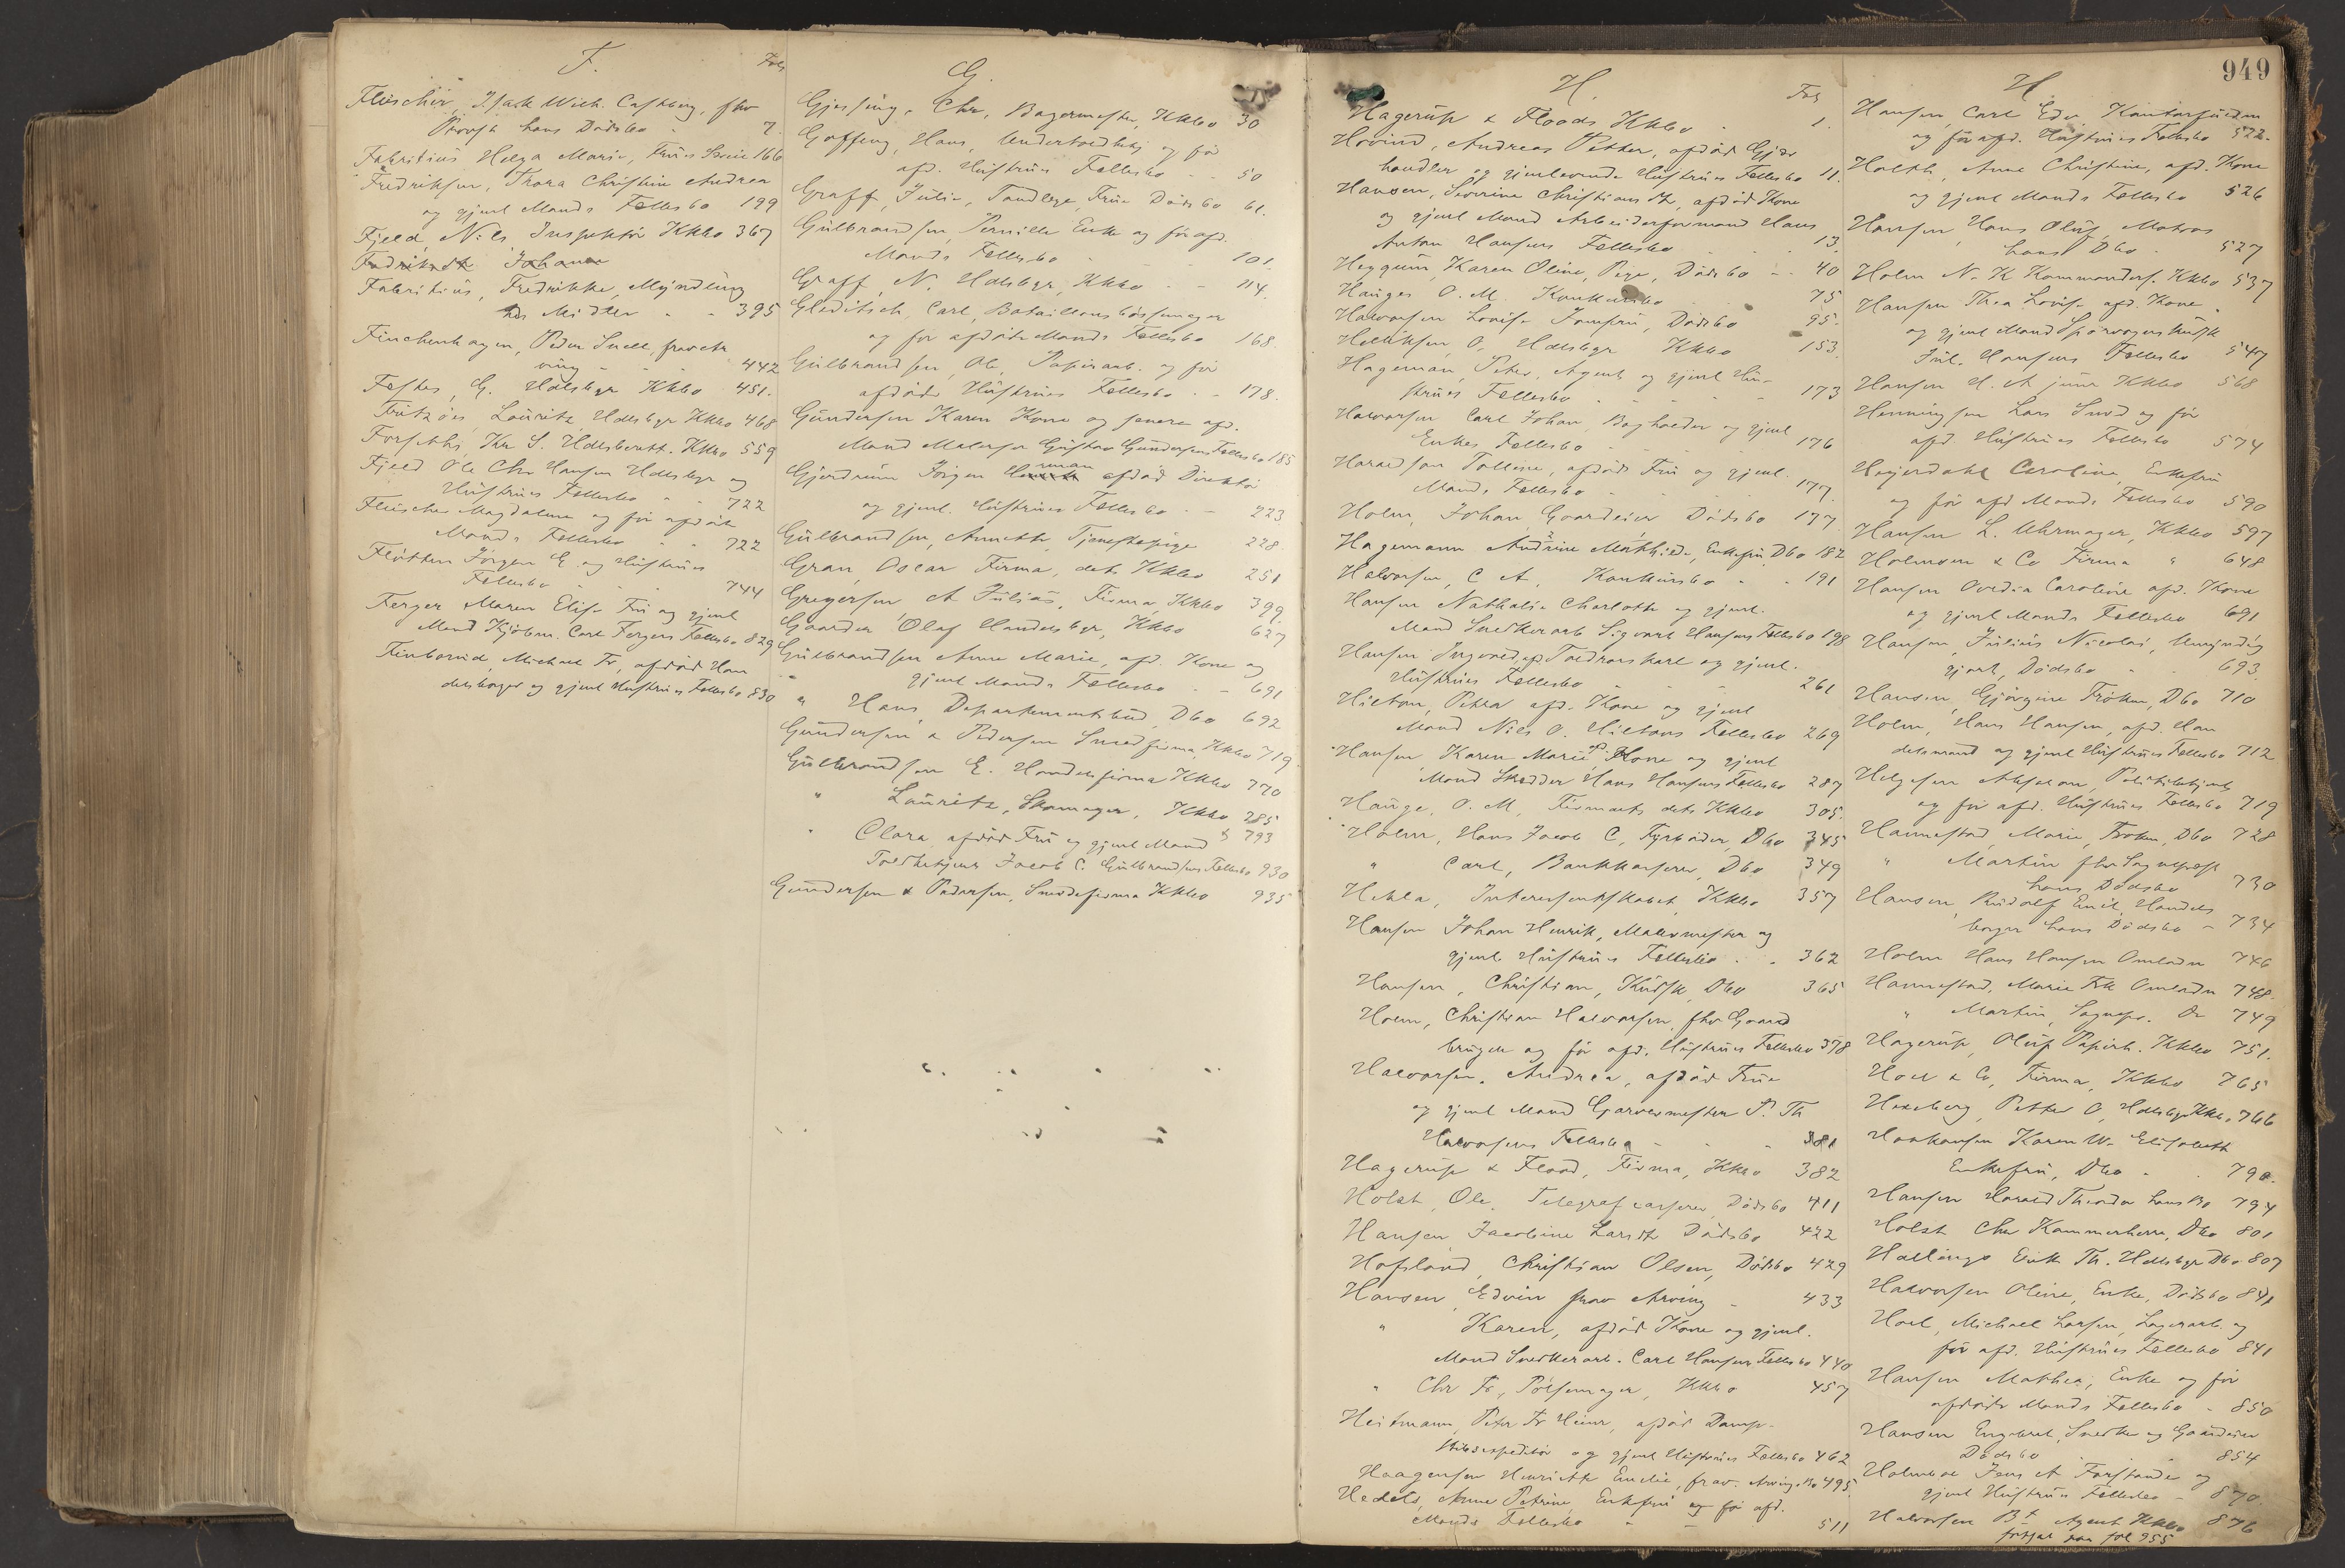 F.
Fols
Fleischer, Isach Wilh. Castberg, fhv
Provst hans Dødsbo - 7.
Fabritius Helga Marie, Frues Særeie 166
Fredriksen, Thora Christine Andrea
og gjenl Mands Fællesbo 199
Fjeld, Nils Inspektør Kkbo 367
Fredrikstd Johanne
Fabritius, Fredrikke, Myndling
hds Midler - - 395
Finchenhagen, Peder Snell, frav Ar
ving - - - 442
Festes, G. Hdlsbgr Kkbo 451.
Fritzøes, Lauritz, Hdlsbgr Kkbo 468
Forseths, Kr S. Hdlsberett. Kkbo 559
Fjeld Ole Chr Hansen Hdlsbgr og
Hustrues Fællesbo - - 722
Fleischer Magdalene og før afdøde
Mands Fællesbo - - 722
Fløtten Jørgen E. og Hustrues
Fællesbo - - 744
Ferger Maren Elise Fru og gjenl
Mand Kjøbm. Carl Fergers Fællesbo 829
Finborud, Michael Fr, afdød Han
delsborger og gjenl Hustrues Fællesbo 830
G.
Gjessing, Chr, Bagermester, Kkbo 30
Goffeng, Hans, Undertoldbetj og før
afd. Hustrues Fællesbo - - 50
Graff, Julie, Tandlæge, Frue Dødsbo 61.
Gulbrandsen, Pernille Enke og før afd.
Mands Fællesbo - - - 101.
Graff, N. Hdlsbgr, Kkbo - - 114.
Gleditsch, Carl, Bataillonsbøssemager
og før afdøde Mands Fællesbo 168.
Gulbrandsen, Ole, Papirarb. og før
afdøde Hustrues Fællesbo - - 178.
Gundersen Karen Kone og senere afd.
Mand Malersv Gustav Gundersens Fællesbo 185
Gjerdrum Jørgen Herman afdød Direktør
og gjenl. Hustrues Fællesbo - - 223
Gulbrandsen, Annette, Tjenestepige 228.
Gran, Oscar Firma, dets Kkbo 251
Gregersen A Julius, Firma, Kkbo 399.
Gaarder Olaf Handelsbgr, Kkbo 627
Gulbrandsen Anne Marie, afd. Kone og
gjenl Mands Fællesbo - - 691
" Hans Departementsbud, Dbo 692
Gundersen & Pedersen Smedfirma, Kkbo 719.
Gulbrandsen E. Handelsfirma Kkbo 770
" Lauritz, Skomager, Kkbo 285 & 793
" Clara, afdød Fru og gjenl Mand
Toldbetjent Jacob C. Gulbrandsens Fællesbo 930
Gundersen & Pedersen, Smedefirma Kkbo 935
H.
Fol
Hagerup & Floods Kkbo - 1.
Hovind, Andreas Petter, afdød Gjær
handler og gjenlevende Hustrues Fællesbo 11.
Hansen, Severine Christiansdt, afdød Kone
og gjenl Mand Arbeiderformand Hans
Anton Hansens Fællesbo - - 13.
Heggum, Karen Oline, Pige, Dødsbo - - 40
Hauges O. M. Konkursbo - - 75
Halvorsen Lovise Jomfru, Dødsbo 95.
Helliksen, O, Hdlsbgr Kkbo 153.
Hageman, Peter, Agent og gjenl Hu-
strues Fællesbo - - - - 173
Halvorsen Carl Johan, Bagholder og gjenl
Enkes Fællesbo - - - 176
Haraldsen Talline, afdøde Fru og gjenl.
Mands Fællesbo - - - 177.
Holm, Johan, Gaardeier Dødsbo 177.
Hagemann Andrine Mathilde, Enkefru, Dbo 182
Halvorsen, C A, Konkursbo - - 191
Hansen Nathalie Charlotte og gjenl.
Mand Snedkerarb Sigvart Hansens Fællesbo 198
Hansen Ingvald, afd Toldvaskarl og gjenl.
Hustrues Fællesbo - - - 261
Hieton, Petra afd. Kone og gjenl
Mand Nils O. Hietons Fællesbo 269
Hansen, Karen Marie afd. Kone og gjenl
Mand Skrædder Hans Hansens Fællesbo 287
Hauge, O. M, Firmaets dets Kkbo 305.
Holm, Hans Jacob C, Fyrbøder, Dbo 345
" Carl, Bankkasserer, Dbo 349
Hekla, Interessentskabet, Kkbo 357
Hansen Johan Henrik, Malermester og
gjenl Hustrues Fællesbo - - 362
Hansen, Christian, Kudsk, Dbo 365
Holm, Christian Halvorsen, fhv Gaard
bruger og før afd. Hustrues Fællesbo 378
Halvorsen, Andrea, afdød Frue
og gjenl Mand Garvermester P. Th
Halvorsens Fællesbo - - - 381
Hagerup & Flood, Firma, Kkbo 382
Holst, Ole, Telegrafcasserer, Dødsbo 411
Hansen Jacobine Larsdtr Dødsbo 422
Hofsland, Christian Olsen, Dødsbo 429
Hansen, Edvin frav Arving - 433
" Karen, afdød Kone og gjenl.
Mand Snedkerarb. Carl Hansens Fællesbo 440
" Chr Fr., Pølsemager, Kkbo 457
Heitmann, Peter Fr Heinr, afdød Damp-
skibsexpeditør og gjenl Hustrues Fællesbo 462
Haagensen Henriette Emelie, frav. Arving. Bo 495
Hedels, Anne Petrine, Enkefru og før afd.
Mands Fællesbo - - 511
H.
949
Hansen, Carl Edv. Kantorfuldm
og før afd. Hustrues Fællesbo 522.
Holth, Anne Christine, afd. Kone
og gjenl Mands Fællesbo 526
Hansen, Hans Oluf, Matros
hans Dbo - 527
Holm N. K Kommanders. Kkbo 537
Hansen Thea Lovise afd. Kone
og gjenl Mand Sporvognskudsk
Jul. Hansens Fællesbo 547
Hansen H. A junr Kkbo 568
Henningsen Lars Smed og før
afd Hustrues Fællesbo 574
Heyerdahl Caroline, Enkefru
og før afd Mands Fællesbo 590
Hansen L. Uhrmager, Kkbo 597
Holmsen & Co Firma " 648
Hansen Ovedia Caroline afd. Kone
og gjenl Mands Fællesbo 691
Hansen, Julius Nicolai, Umyndig
gjort, Dødsbo - 693.
Hansen, Gjørgine Frøken, Dbo 710
Holm, Hans Hansen, afd. Han
delsmand og gjenl Hustrues Fællesbo 712
Helgesen Absalon, Politibetjent
og før afd. Hustrues Fællesbo 719
Hannestad, Marie, Frøken, Dbo 728
" Martin fhv Sogneprest
hans Dødsbo 730
Hansen, Rudolf Emil, Handels
borger hans Dødsbo - 734
Holm Hans Hansen Omladn 746
Hannestad, Marie Frk Omladn 748.
" Martin, Sognepr. Do 749
Hagerup, Oluf Papirh. Kkbo 751.
Hoel & Co, Firma, Kkbo 765
Hexeberg, Petter O, HdlsbgrKkb. 766
Haakonsen Karen W. Elisabeth
Enkefru, Dbo - 790.
Hansen Harald Theodor hans Bo 794
Holst Chr Kammerherre, Dbo 801
Hallings Eirik Th. Hdlsbgr Dbo 807
Halvorsen Oline, Enke, Dødsbo 841
Hoel, Michael Larsen, Lagerarb. og
før afd. Hustrues Fællesbo 841
Hansen Mathea, Enke og før
afdøde Mands Fællesbo - 850
Hansen Engebret, Snedker og Gaardeier
Dødsbo 854
Holmboe Jens A Forstander og
gjenl Hustrues Fællesbo - 870.
Halvorsen Bt Agent Kkbo 876
fortsat paa fol 955